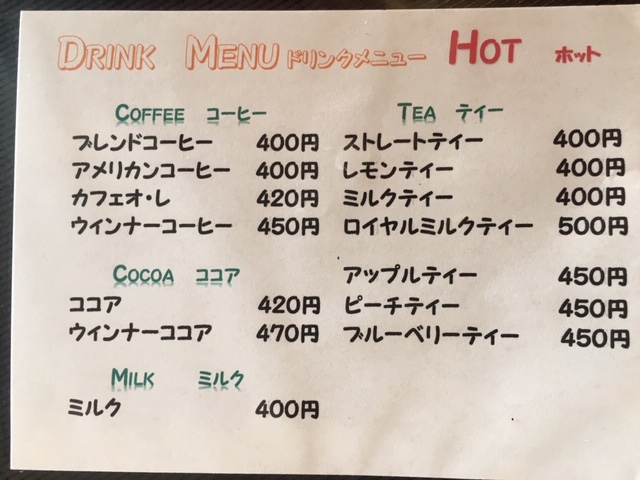 DRINK MENU ドリンクメニュー HOT ホット
COFFEE コーヒー
ブレンドコーヒー 400円
アメリカンコーヒー 400円
カフェオ・レ 420円
ウインナーコーヒー 450円
COCOA ココア
ココア 420円
ウインナーココア 470円
MILK ミルク
ミルク 400円
TEA ティー
ストレートティー 400円
レモンティー 400円
ミルクティー 400円
ロイヤルミルクティー 500円
アップルティー 450円
ピーチティー 450円
ブルーベリーティー 450円